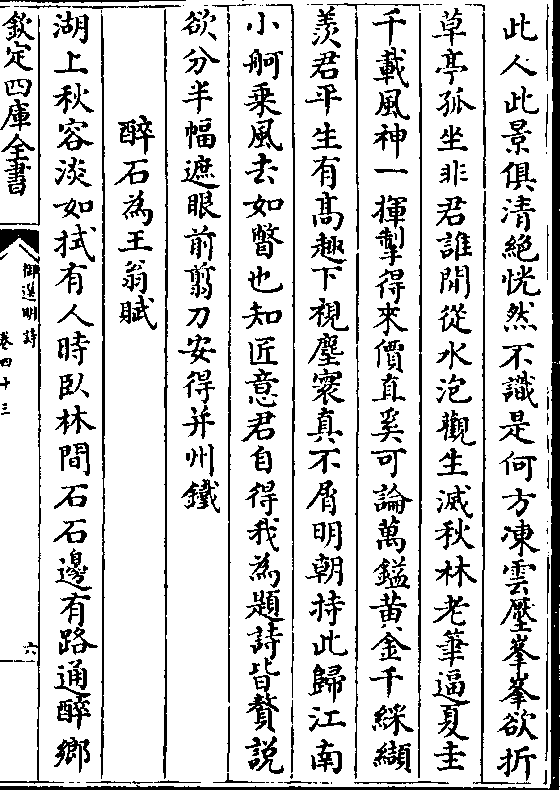 此人此景俱清絶恍然不識是何方凍雲壓峯峯欲折
草亭孤坐非君誰閒從水泡觀生滅秋林老筆逼夏圭
千載風神一揮掣得來價直奚可論萬鎰黄金千綵纈
羨君平生有髙趣下視塵寰真不屑明朝持此歸江南
小舸乗風去如瞥也知匠意君自得我為題詩皆贅説
欲分半幅遮眼前翦刀安得并州鐵
醉石為王翁賦
湖上秋容淡如拭有人時卧林間石石邊有路通醉鄉
欽定四庫全書
御選明詩
卷四十三
六